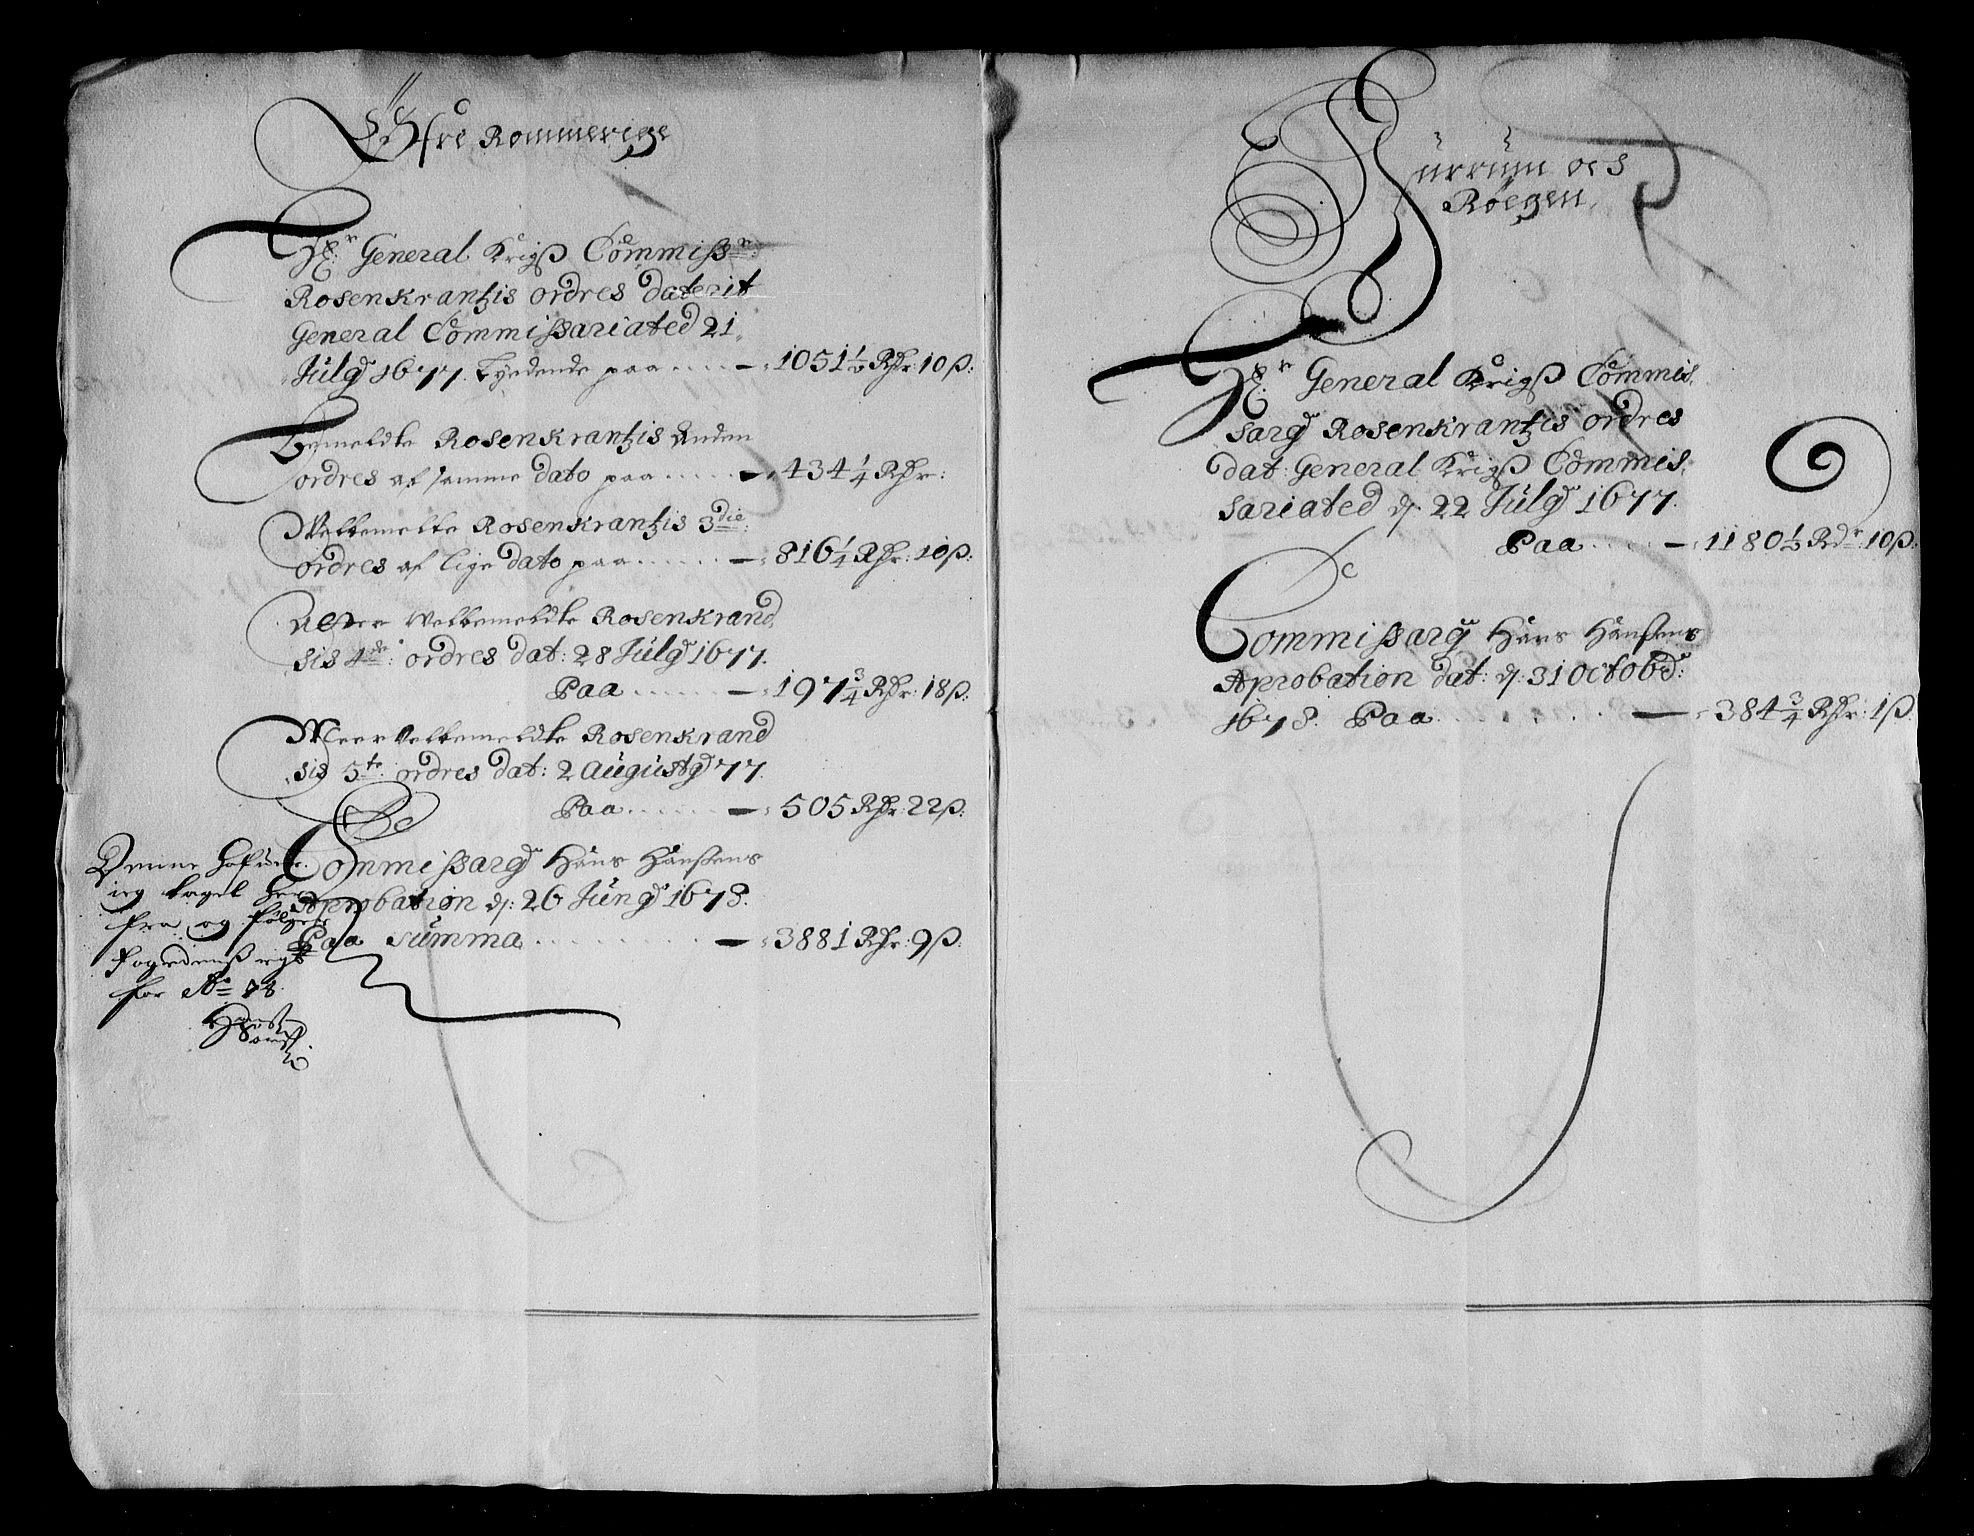 Öfre Rommerige
Hr: General Krigß Commißr:
Rosenkrantzis ordres daterit
General Commißariated 21
Julÿ 1677. Lydende paa ..... 1051½ Rdr: 10ß:
Bemeldte Rosenkrantzis Anden
ordres af samme dato paa ..... 434¼ Rdr:
Velbemelte Rosenkrantzis 3die:
ordres af lige dato paa ...... 816¼ Rdr: 10ß:
Velbemeldte Rosenkrand
sis 4de: ordres dat: 28 Julÿ 1677.
Paa ...... 197¾ Rdr: 18ß:
Meer Velbemeldte Rosenkrand
sis 5te. ordres dat: 2 Augustÿ 77.
Paa ...... 505 Rdr: 22ß:
Commißarÿ Hans Hanßens
Aprobation d: 26 Junÿ 1678.
Paa Summa ........ 3881 Rdr: 9ß:
Denne hafuer
ieg taget her
fra og følger
fogedens
for Ao 78.
Burrum och
Röegen.
Hr General Krigß Commis,
sarÿ Rosenkrantzis ordres
dat: General Krigß Commis,
sariated d. 22 Julÿ 1677.
Paa ..... 1180½ Rdr: 10ß:
Commißarÿ Hans Hanßens
Aprobation dat: d: 31 Octobr:
1678. Paa ....... 384¾ Rdr: 1ß.